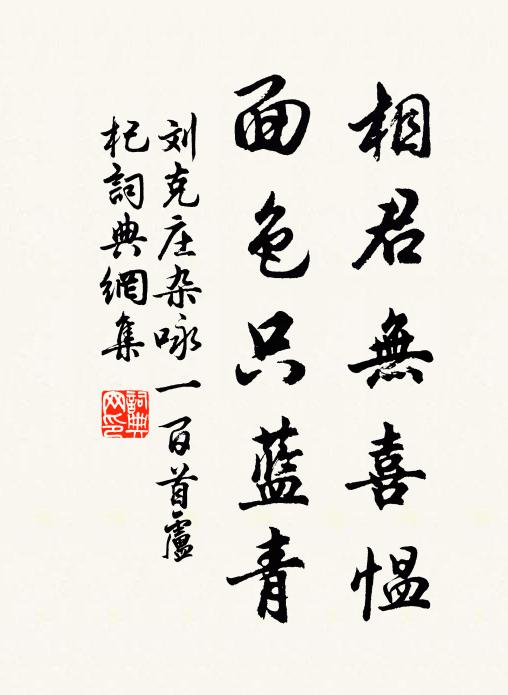 相君無喜愠
面色只藍青
刘克庄杂咏一百首盧
杞詞典網集
詞典网印